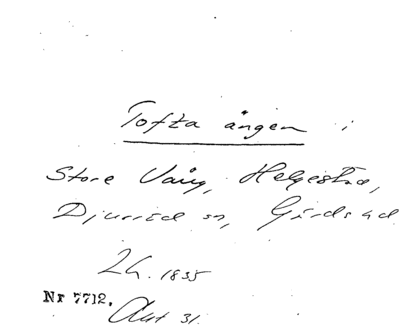 Tofta ängen i
Store Vång, Helgestad,
Djurröd sn, Gärds hd
Lh. 1835
Nr 7712.
Akt 31.